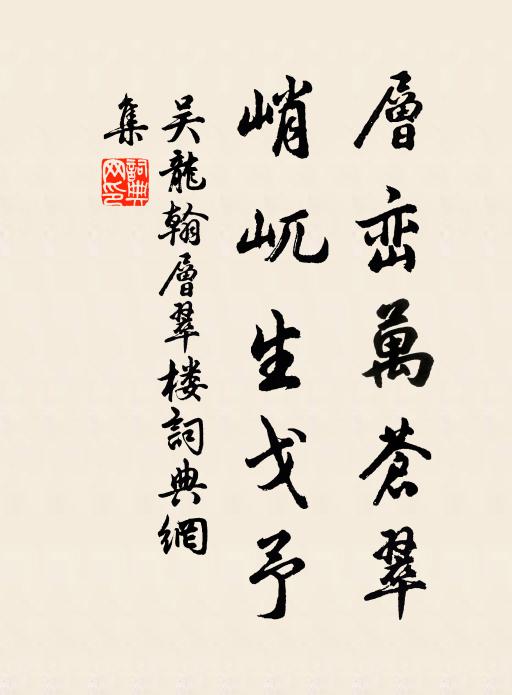 層峦萬蒼翠
峭屼生戈予
吴龍翰層翠楼詞典網
集
詞典網印